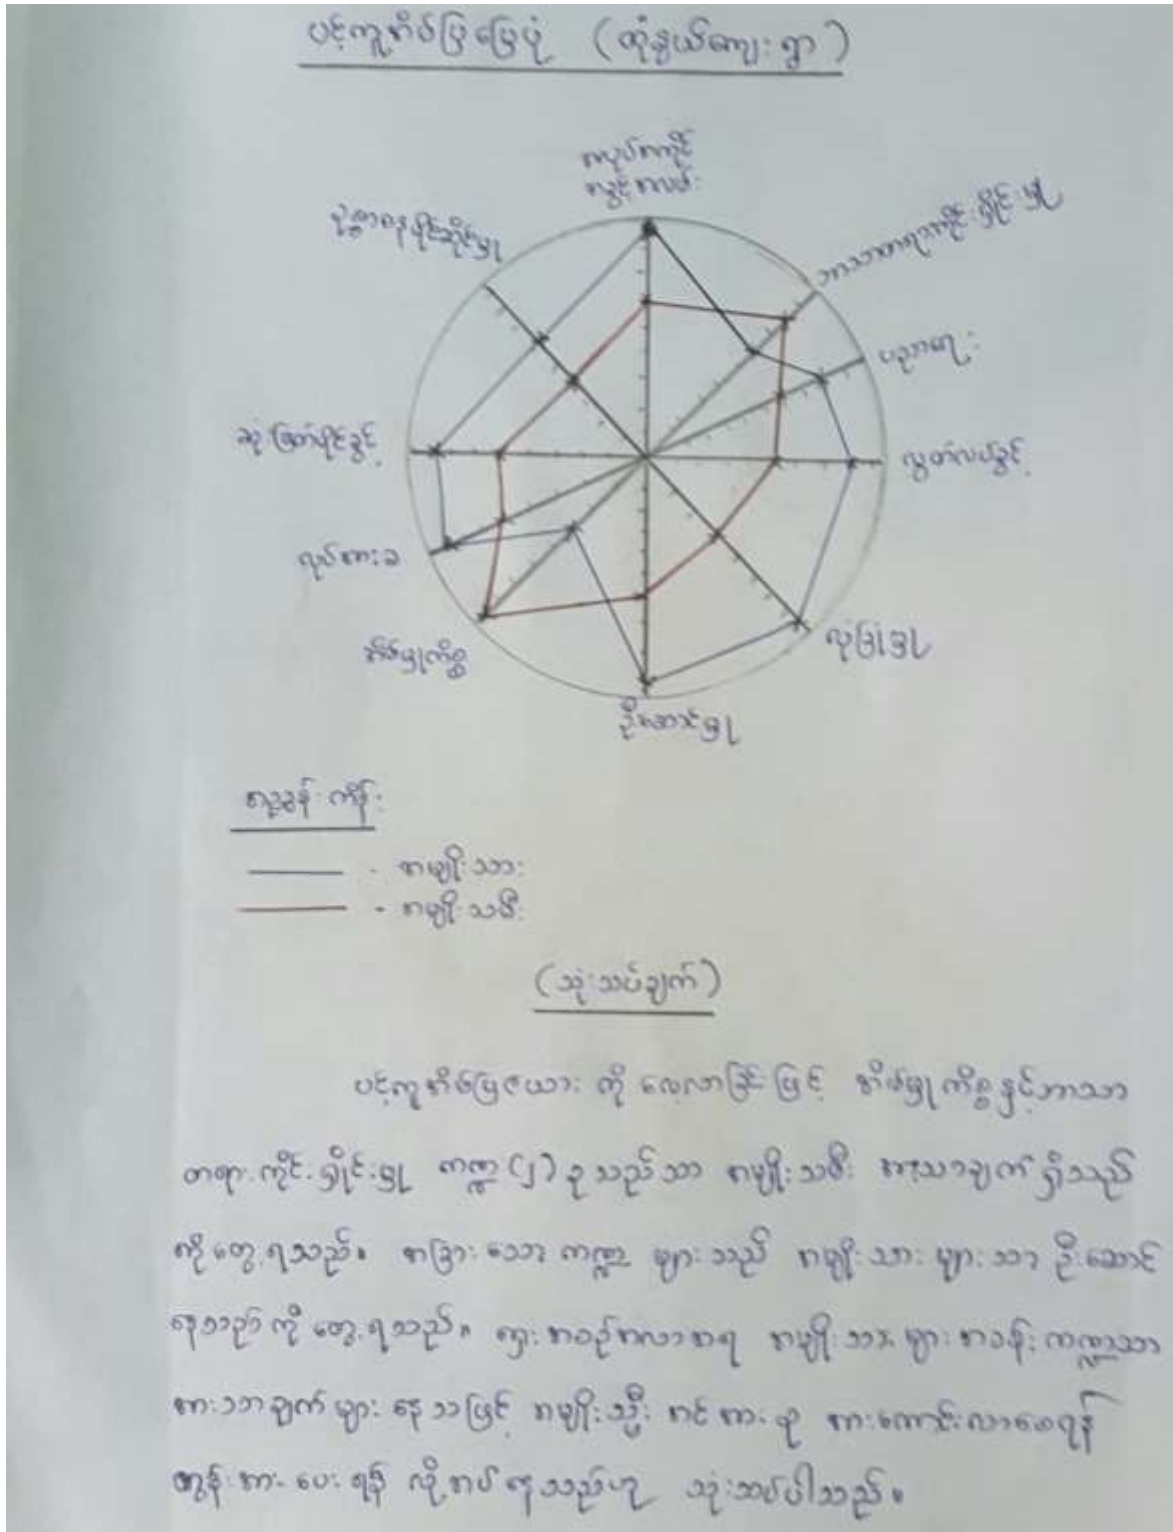 ပင့်ကူအိမ်ပြမြေပုံ (ထုံနွယ်ကျေးရွာ)
အလုပ်အကိုင်
အခွင့်အလမ်း
ဘာသာတရားကိုင်းရှိုင်းမှု
ပညာရေး
လွတ်လပ်ခွင့်
လုံခြုံမှု
ဦးဆောင်မှု
အိမ်မှုကိစ္စ
လုပ်အားခ
ဆုံးဖြတ်ပိုင်ခွင့်
ပိုင်ဆိုင်မှု
ရည်ညွှန်းကိန်း
- အမျိုးသား
- အမျိုးသမီး
(သုံးသပ်ချက်)
ပင့်ကူအိမ်ပြဇယားကို လေ့လာခြင်းဖြင့် အိမ်မှုကိစ္စနှင့်ဘာသာ
တရားကိုင်းရှိုင်းမှု ကဏ္ဍ (၂) ခုသည်သာ အမျိုးသမီး အားသာချက်ရှိသည်
ကိုတွေ့ရသည်။ အခြားသော ကဏ္ဍများသည် အမျိုးသားများသာ ဦးဆောင်
နေသည်ကို တွေ့ရသည်။ အစဉ်အလာအရ အမျိုးသားများအခန်းကဏ္ဍသာ
အားသာချက်များနေသဖြင့် အမျိုးသမီး အင်အားစု အားကောင်းလာစေရန်
တွန်းအားပေးရန် လိုအပ်နေသည်ဟု သုံးသပ်ပါသည်။